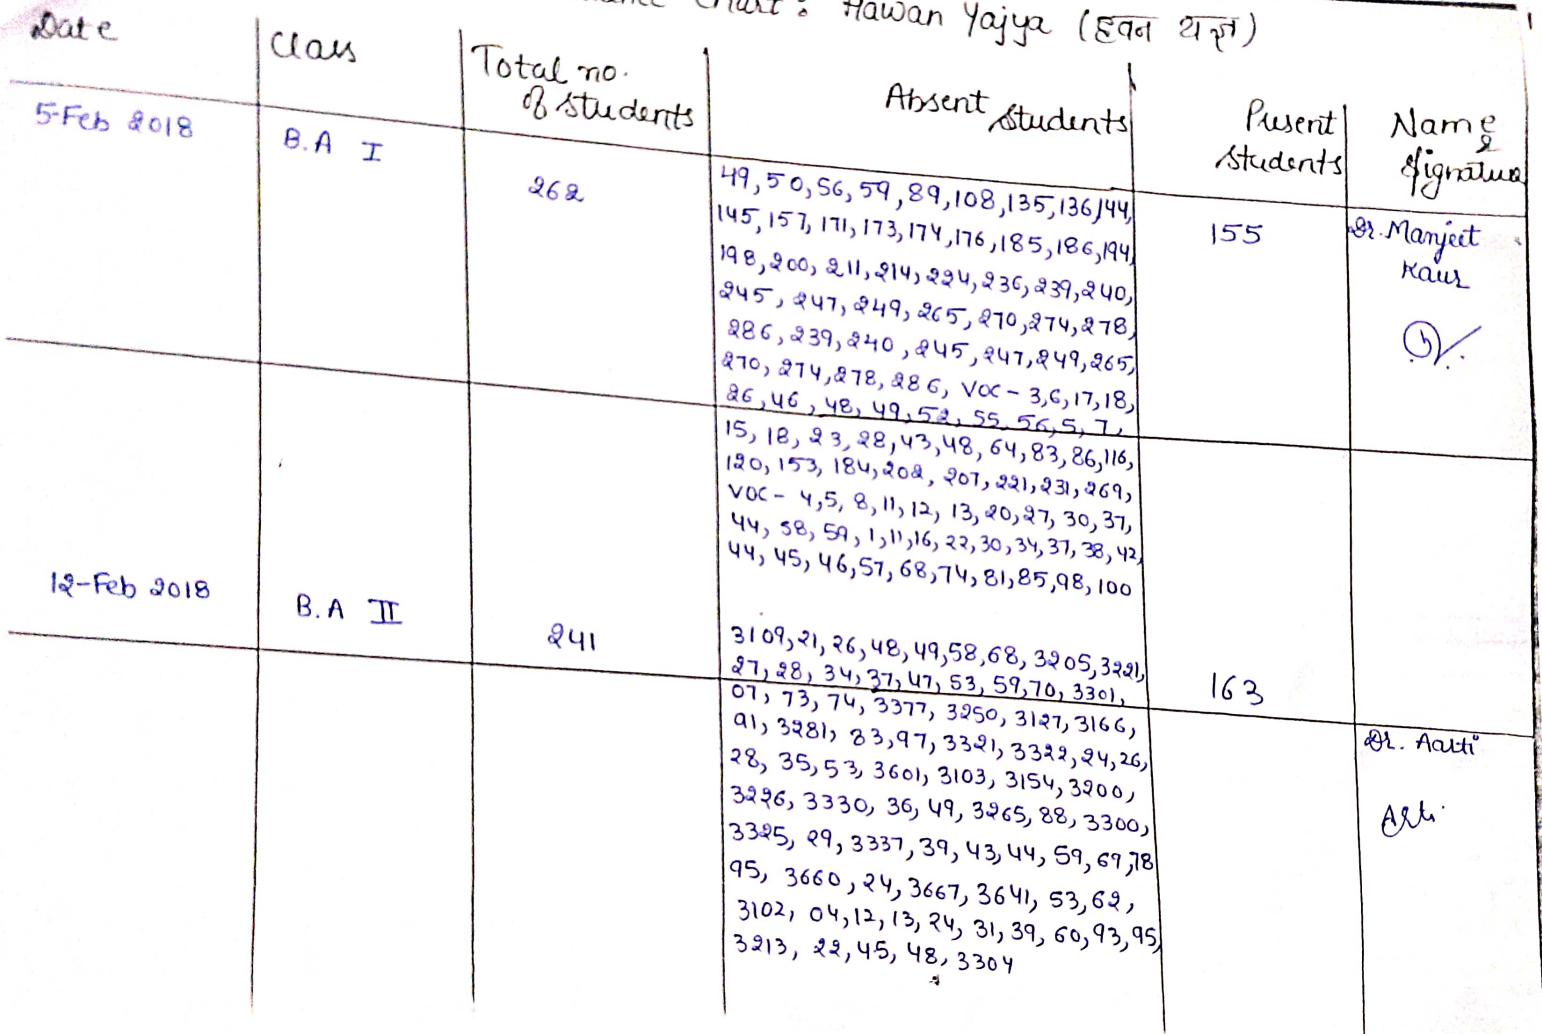 Chart : Hawan Yajya (हवन यज्ञ)
Date
Class
Total no. of students
Absent Students
Present students
Name & Signature
5-Feb 2018
B.A I
262
49,50,56,59,89,108,135,136,144,
145,157,171,173,174,176,185,186,194,
198,200,211,214,224,236,239,240,
245,247,249,265,270,274,278,
286,239,240,245,247,249,265,
270,274,278,286, VOC - 3,6,17,18,
26,46,48,49,52,55,56,5,7,
15,18,23,28,43,48,64,83,86,116,
120,153,184,202,207,221,231,269,
VOC - 4,5,8,11,12,13,20,27,30,37,
44,58,59,1,11,16,22,30,34,37,38,42,
44,45,46,57,68,74,81,85,98,100
155
Dr. Manjeet
Kaur
12-Feb 2018
B.A II
241
3109,21,26,48,49,58,68,3205,3221,
27,28,34,37,47,53,59,70,3301,
07,73,74,3377,3250,3127,3166,
91,3281,83,97,3321,3322,24,26,
28,35,53,3601,3103,3154,3200,
3226,3330,36,49,3265,88,3300,
3325,29,3337,39,43,44,59,69,78
95,3660,24,3667,3641,53,62,
3102,04,12,13,24,31,39,60,93,95,
3213,22,45,48,3304
163
Dr. Aarti
Arti